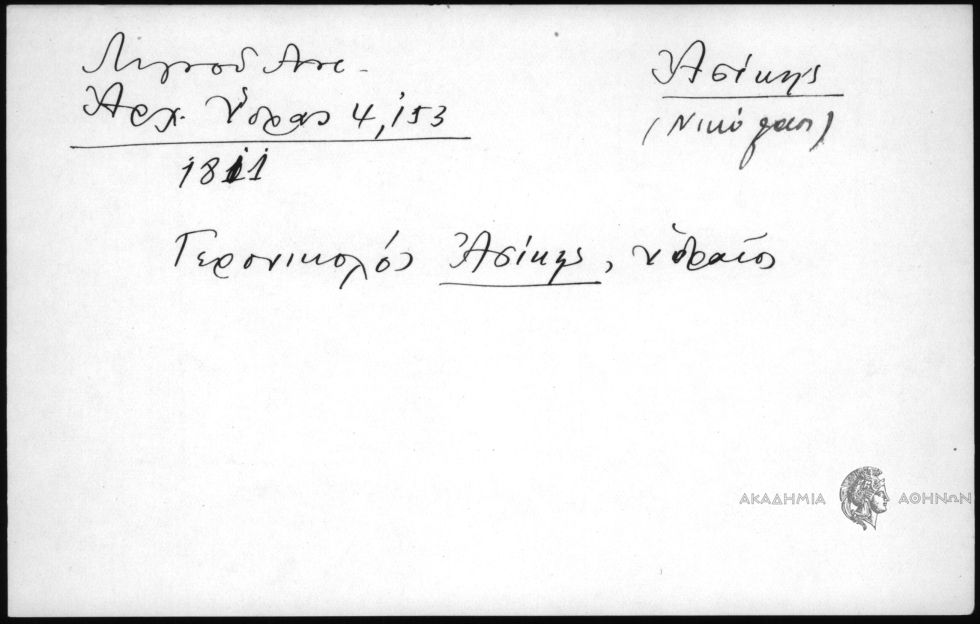 Λιγνοδ Αντ.
Ἀρχ. Ὕδρας 4, 153
1811
Ἀσίκης
(Νικόλαος)
Γερονικολός Ἀσίκης, ὑδραῖος
ΑΚΑΔΗΜΙΑ ΑΘΗΝΩΝ